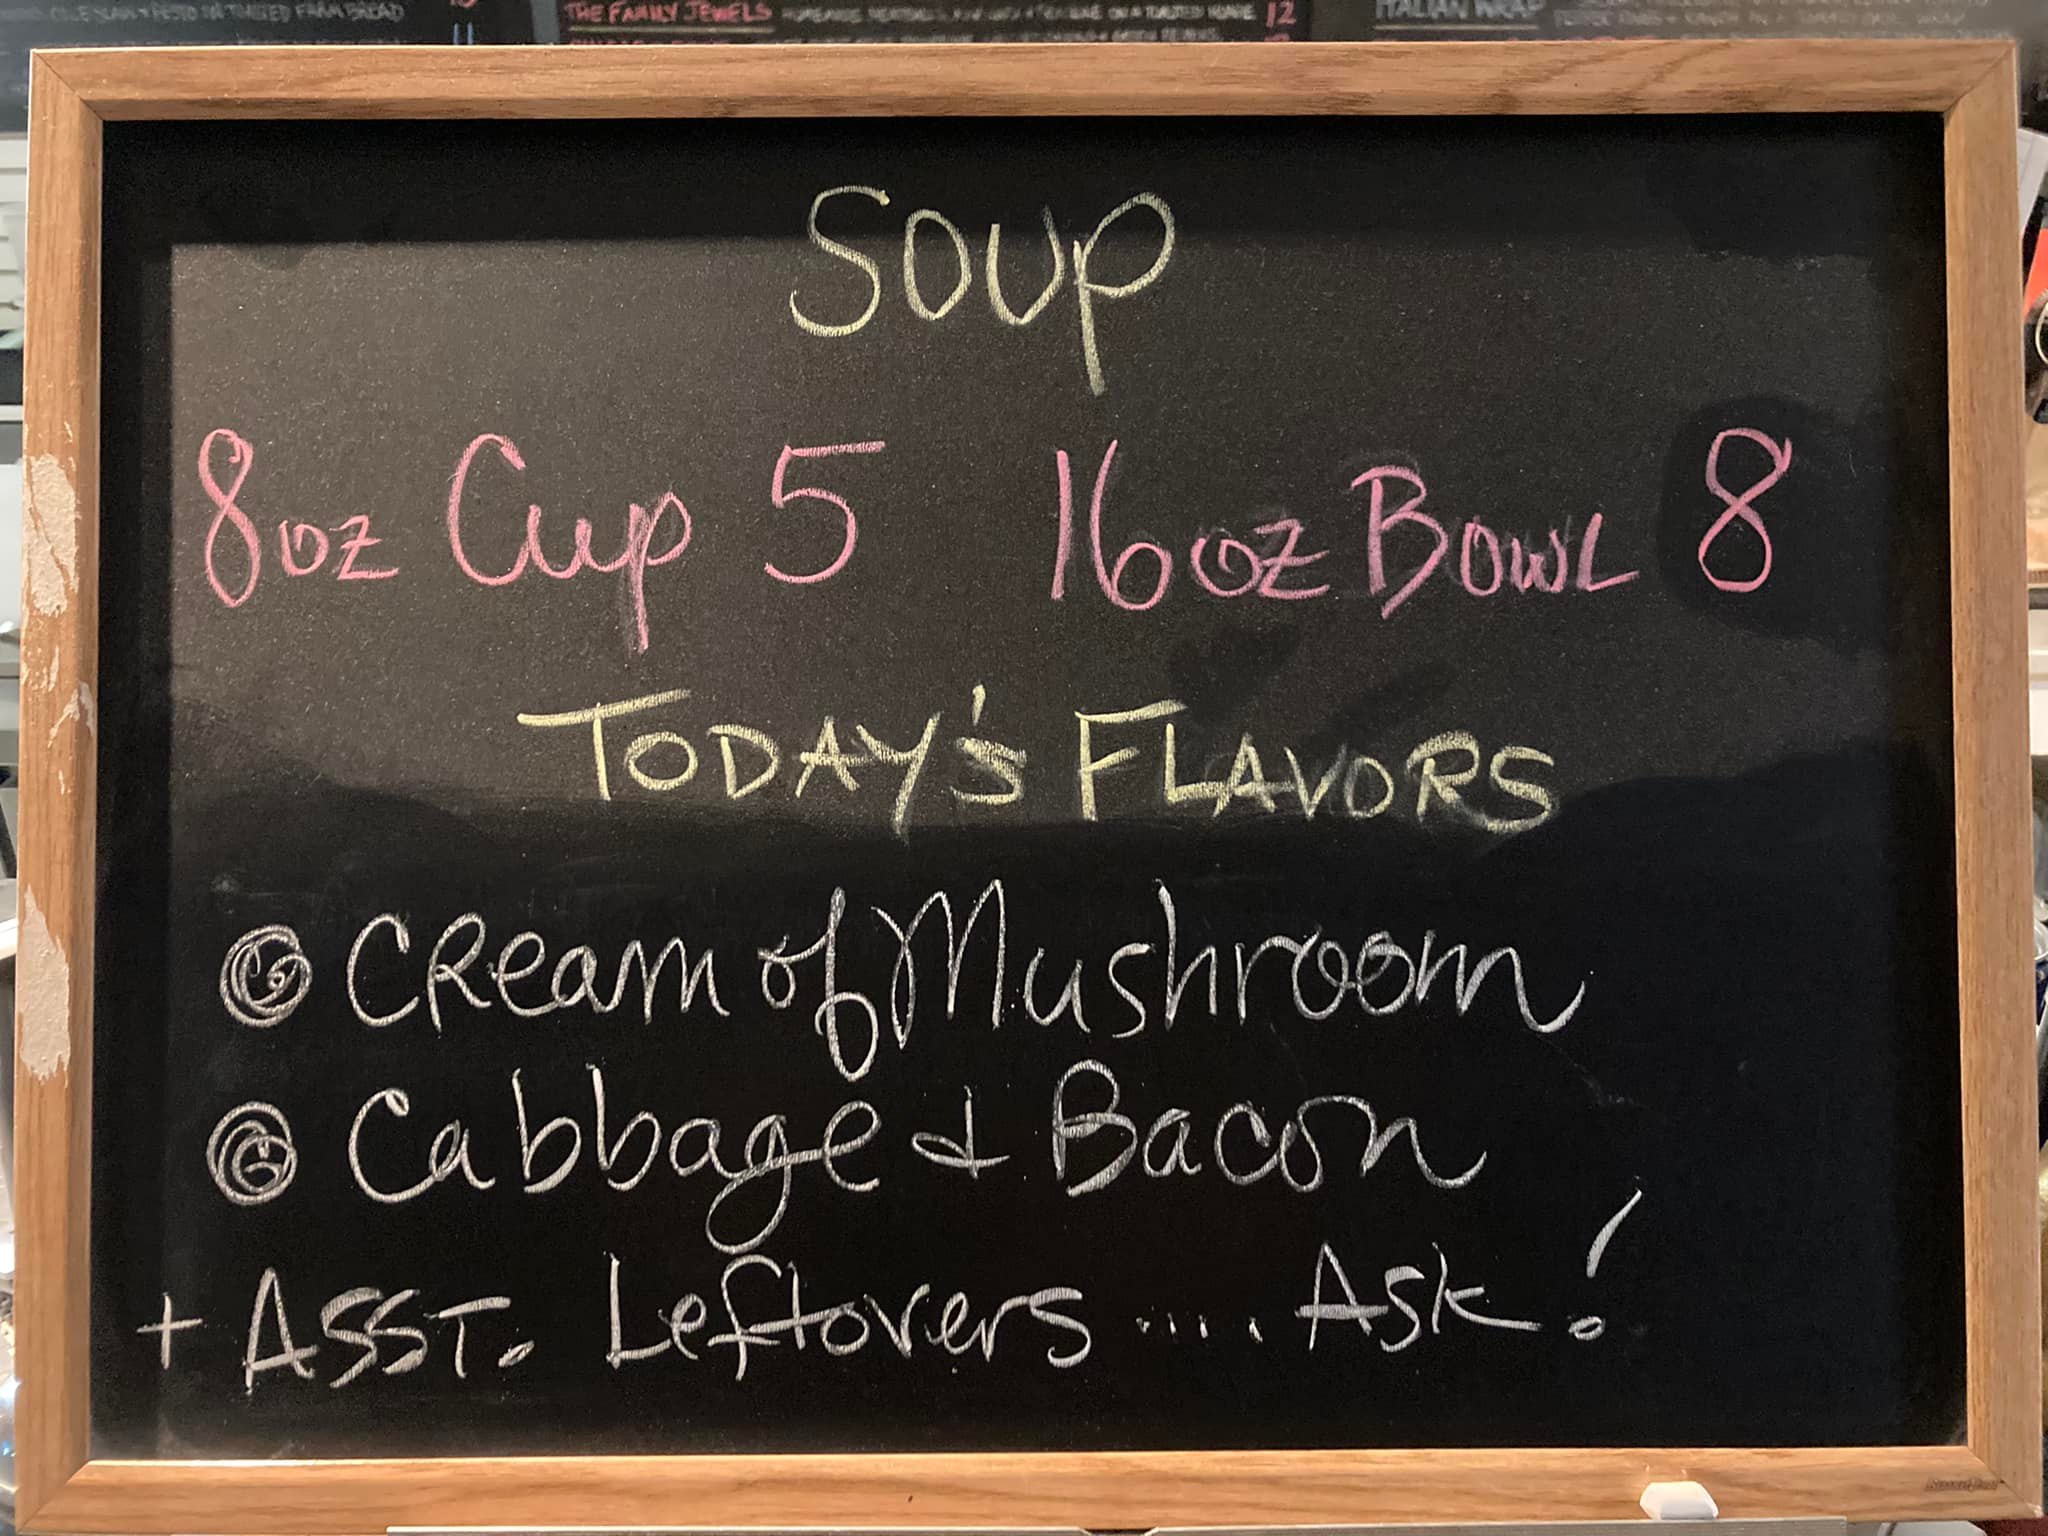 FARM BREAD
THE FAMILY JEWELS HOMEMADE MEATBALLS ON A TOASTED HOAGIE 12
11
ITALIAN WRAP
Soup
8oz Cup 5 16oz Bowl 8
TODAY'S FLAVORS
Cream of Mushroom
Cabbage & Bacon
+ ASST. Leftovers .... Ask!